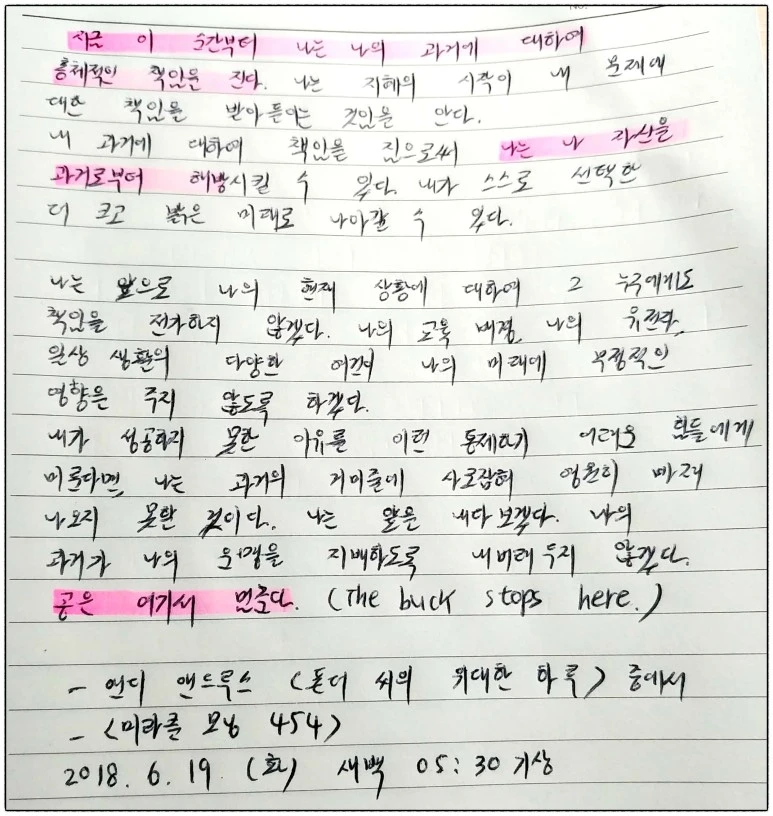 지금 이 순간부터 나는 나의 과거에 대하여
총체적인 책임을 진다. 나는 지혜의 시작이 내 문제에
대한 책임을 받아들이는 것임을 안다.
내 과거에 대하여 책임을 짐으로써 나는 나 자신을
과거로부터 해방시킬 수 있다. 내가 스스로 선택한
더 크고 밝은 미래로 나아갈 수 있다.
나는 앞으로 나의 현재 상황에 대하여 그 누구에게도
책임을 전가하지 않겠다. 나의 교육 배경, 나의 유전자,
일상 생활의 다양한 여건이 나의 미래에 부정적인
영향은 주지 않도록 하겠다.
내가 성공하지 못한 이유를 이런 통제하기 어려운 힘들에게
미룬다면, 나는 과거의 거미줄에 사로잡혀 영원히 빠져
나오지 못할 것이다. 나는 앞을 내다보겠다. 나의
과거가 나의 운명을 지배하도록 내버려 두지 않겠다.
공은 여기서 멈춘다. (The buck stops here.)
- 앤디 앤드루스 <폰더 씨의 위대한 하루> 중에서
- <미라클 모닝 454>
2018. 6. 19 (화) 새벽 05:30 기상